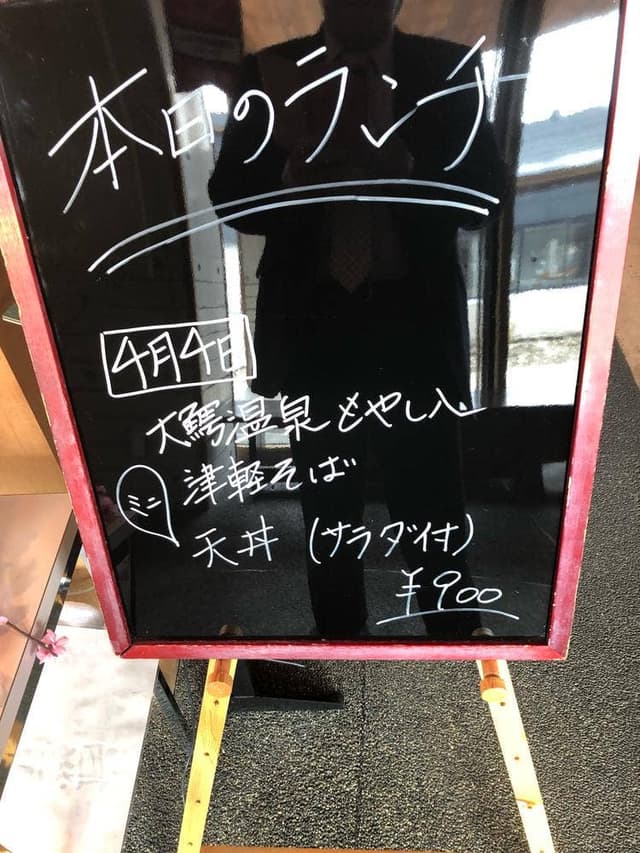 本日のランチ
4月4日
大鰐温泉もやし入
津軽そば
ミニ
天丼(サラダ付)
¥900